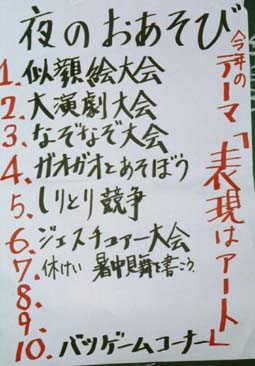 夜のおあそび
今年の
テーマ「表現はアート」
1. 似顔絵大会
2. 大演劇大会
3. なぞなぞ大会
4. ガオガオとあそぼう
5. しりとり競争
6. ジェスチュアー大会
7. 休けい 暑中見舞を書こう
8.
9.
10. バツゲームコーナー